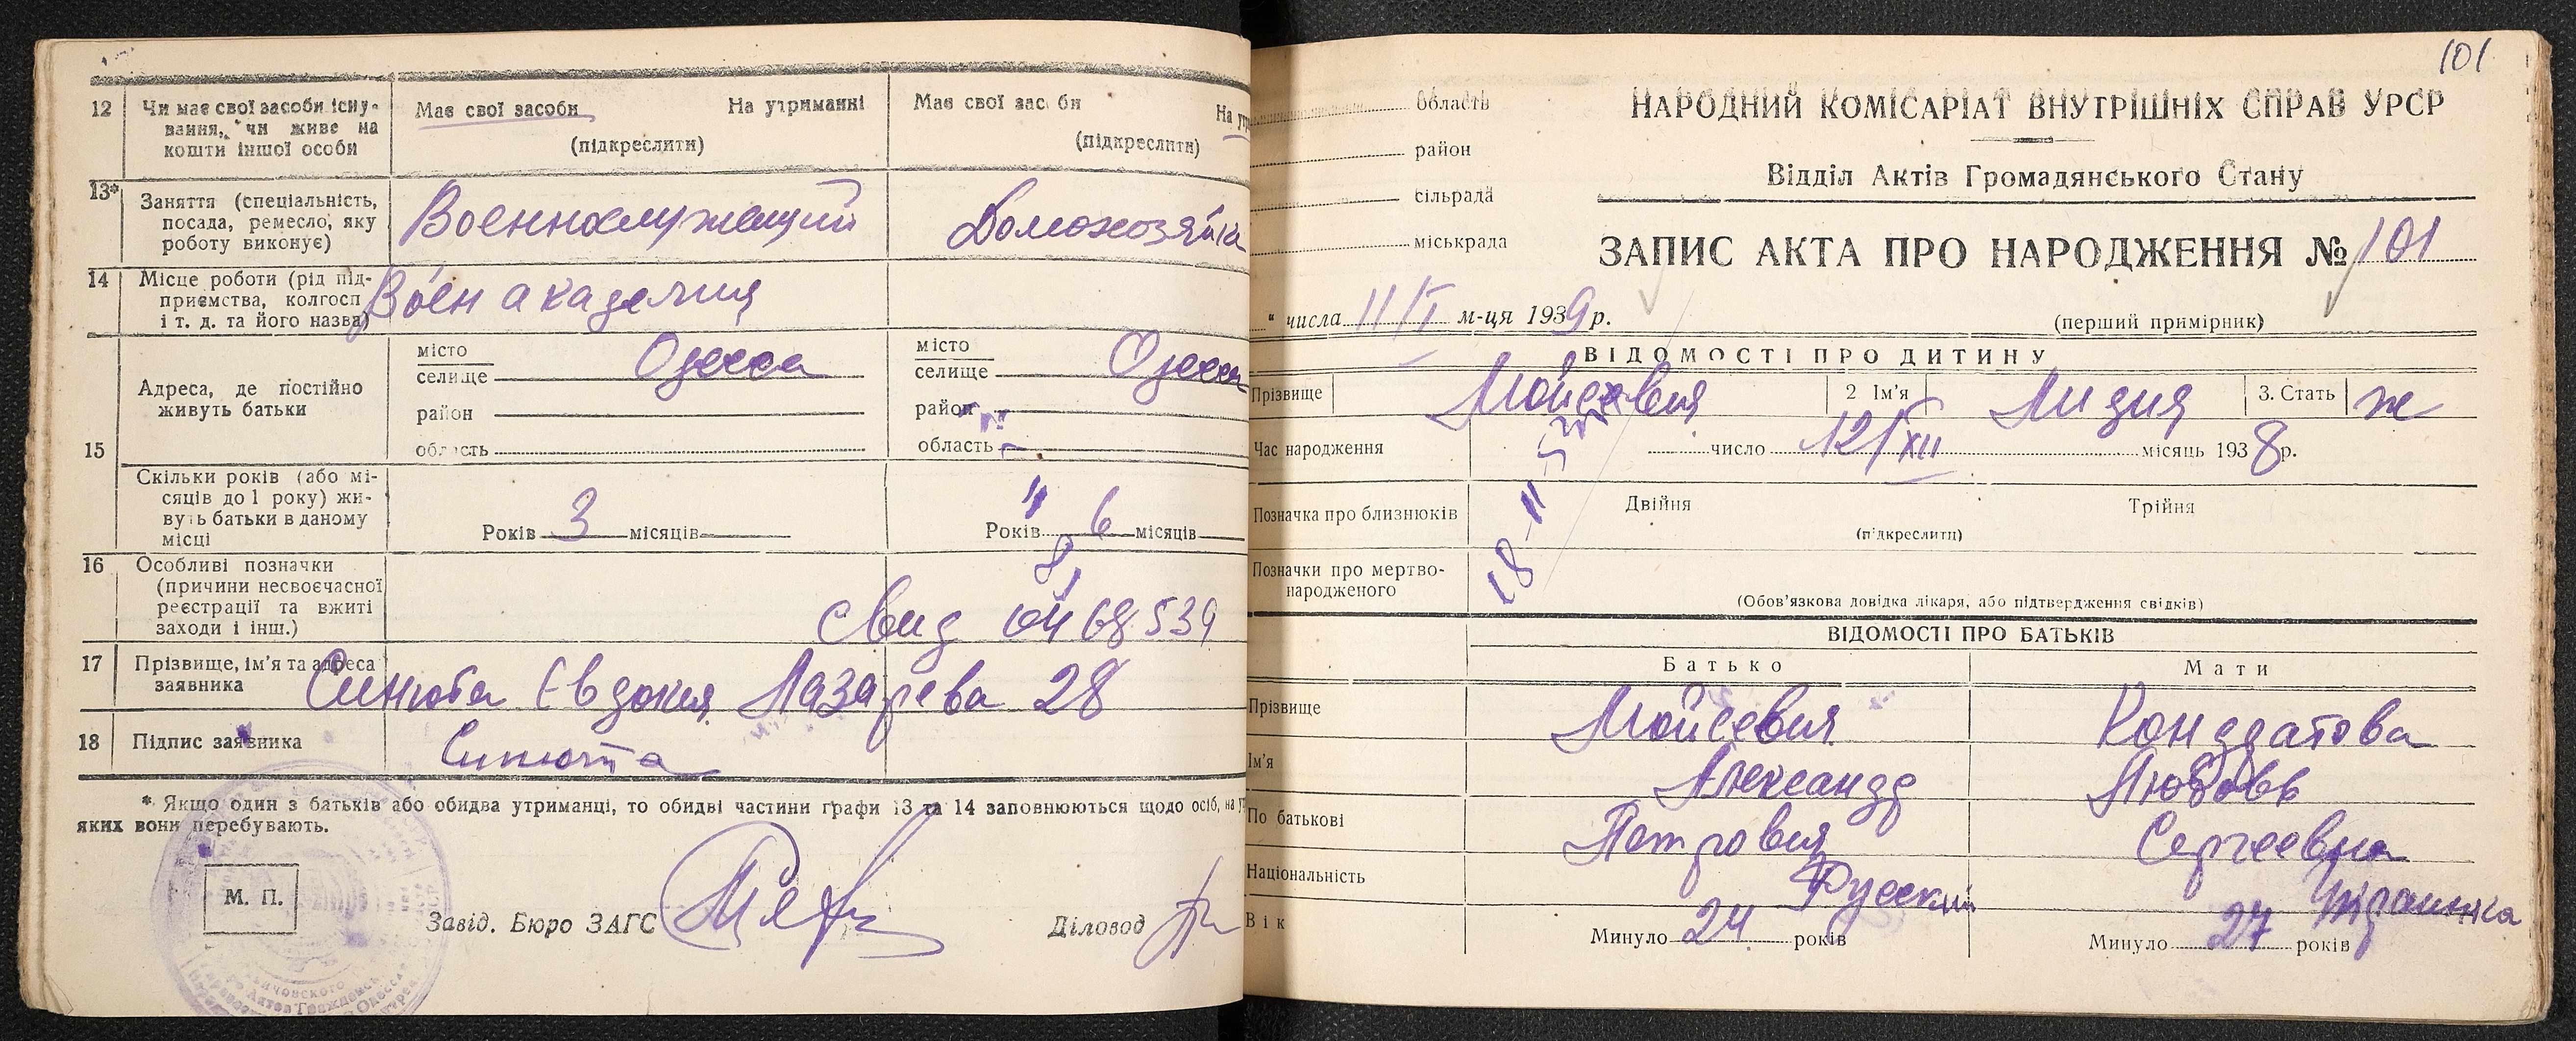 12 Чи має свої засоби існу-
вання, чи живе на
кошти іншої особи
Має свої засоби На утриманні
(підкреслити)
Має свої засоби На
(підкреслити)
13* Заняття (спеціальність,
посада, ремесло, яку
роботу виконує)
Военнослужащий
Домохозяйка
14 Місце роботи (рід під-
приємства, колгосп
і т. д. та його назва)
Воен академия
15 Адреса, де постійно
живуть батьки
місто
селище Одесса
район
область
місто
селище Одесса
район
область
Скільки років (або мі-
сяців до 1 року) жи-
вуть батьки в даному
місці
Років 3 місяців
Років 6 місяців
16 Особливі позначки
(причини несвоєчасної
реєстрації та вжиті
заходи і інш.)
свид 68539
17 Прізвище, ім'я та адреса
заявника
Синюта Евдокия Лазарева 28
18 Підпис заявника
Синюта
* Якщо один з батьків або обидва утриманці, то обидві частини графи 13 та 14 заповнюються щодо осіб, на
яких вони перебувають.
М. П.
Завід. Бюро ЗАГС
Діловод
101
область
район
сільрада
міськрада
НАРОДНИЙ КОМІСАРІАТ ВНУТРІШНІХ СПРАВ УРСР
Відділ Актів Громадянського Стану
ЗАПИС АКТА ПРО НАРОДЖЕННЯ № 101
" числа 11/I м-ця 1939 р.
(перший примірник)
ВІДОМОСТІ ПРО ДИТИНУ
Прізвище Мойсевич 2 Ім'я Лидия 3. Стать ж
Час народження число 12/XII місяць 1938 р.
Позначка про близнюків Двійня Трійня
(підкреслити)
Позначки про мертво-
народженого
(Обов'язкова довідка лікаря, або підтвердження свідків)
ВІДОМОСТІ ПРО БАТЬКІВ
Батько Мати
Прізвище Мойсевич Кондратова
Ім'я Александр Любовь
По батькові Петрович Сергеевна
Національність Русский Украинка
Вік Минуло 24 років Минуло 27 років